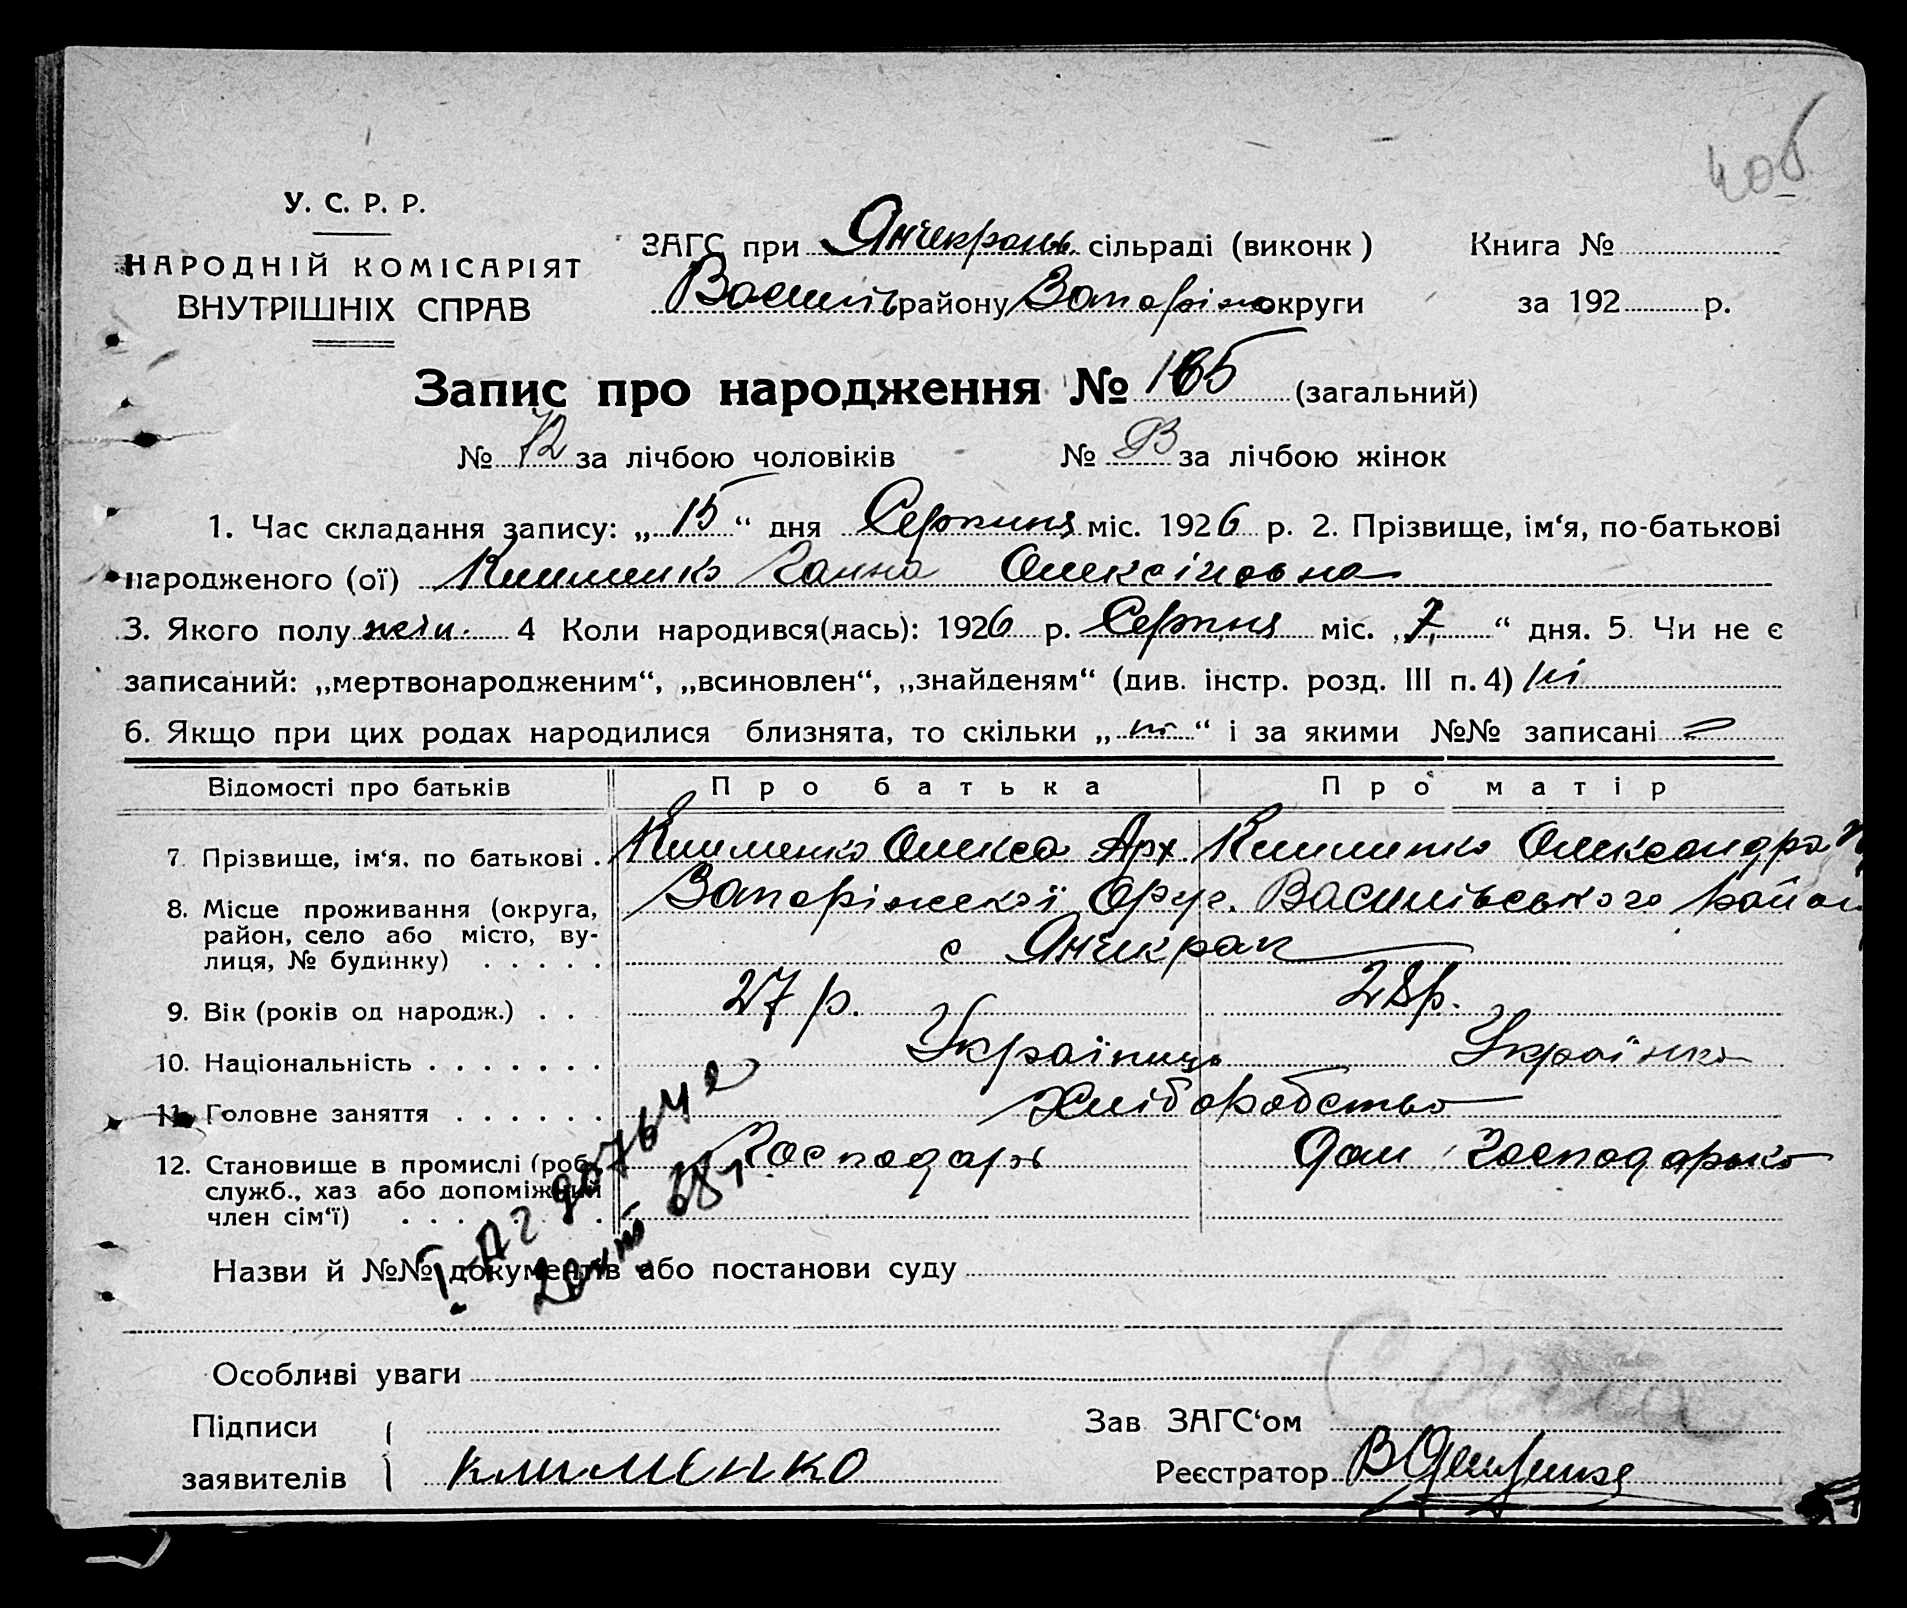 40б
У. С. Р. Р.
НАРОДНІЙ КОМІСАРІЯТ
ВНУТРІШНІХ СПРАВ
ЗАГС при Янчекрань. сільраді (виконк)
Василів району Запоріж округи
Книга №
за 192 р.
Запис про народження № 165 (загальний)
№ 72 за лічбою чоловіків № за лічбою жінок
1. Час складання запису: „ 15 “ дня Серпня міс. 1926 р. 2. Прізвище, ім‘я, по-батькові
народженого (ої) Клименко Ганна Олексіївна
3. Якого полу жін. 4 Коли народився(лась): 1926 р. Серпня міс. „ 7 “ дня. 5. Чи не є
записаний: „мертвонародженим“, „всиновлен“, „знайденям“ (див. інстр. розд. III п. 4) ні
6. Якщо при цих родах народилися близнята, то скільки „ ні “ і за якими №№ записані
Відомості про батьків Про батька Про матір
7. Прізвище, ім‘я, по батькові . Клименко Олекса Арх. Клименко Олександра
8. Місце проживання (округа, Запоріжської Окру. Василівського район
район, село або місто, ву- с Янчекрак
лиця, № будинку) . . . . .
9. Вік (років од народж.) . . 27 р. 28 р.
10. Національність . . . . . . . Українець Українка
11. Головне заняття . . . . . . Хліборобство
12. Становище в промислі (роб., Господарь Дом Господарька
служб., хаз або допоміжний
член сім‘ї) . . . . . . .
Назви й №№ документів або постанови суду
Особливі уваги
Підписи
заявителів клименко
Зав ЗАГС‘ом
Реєстратор